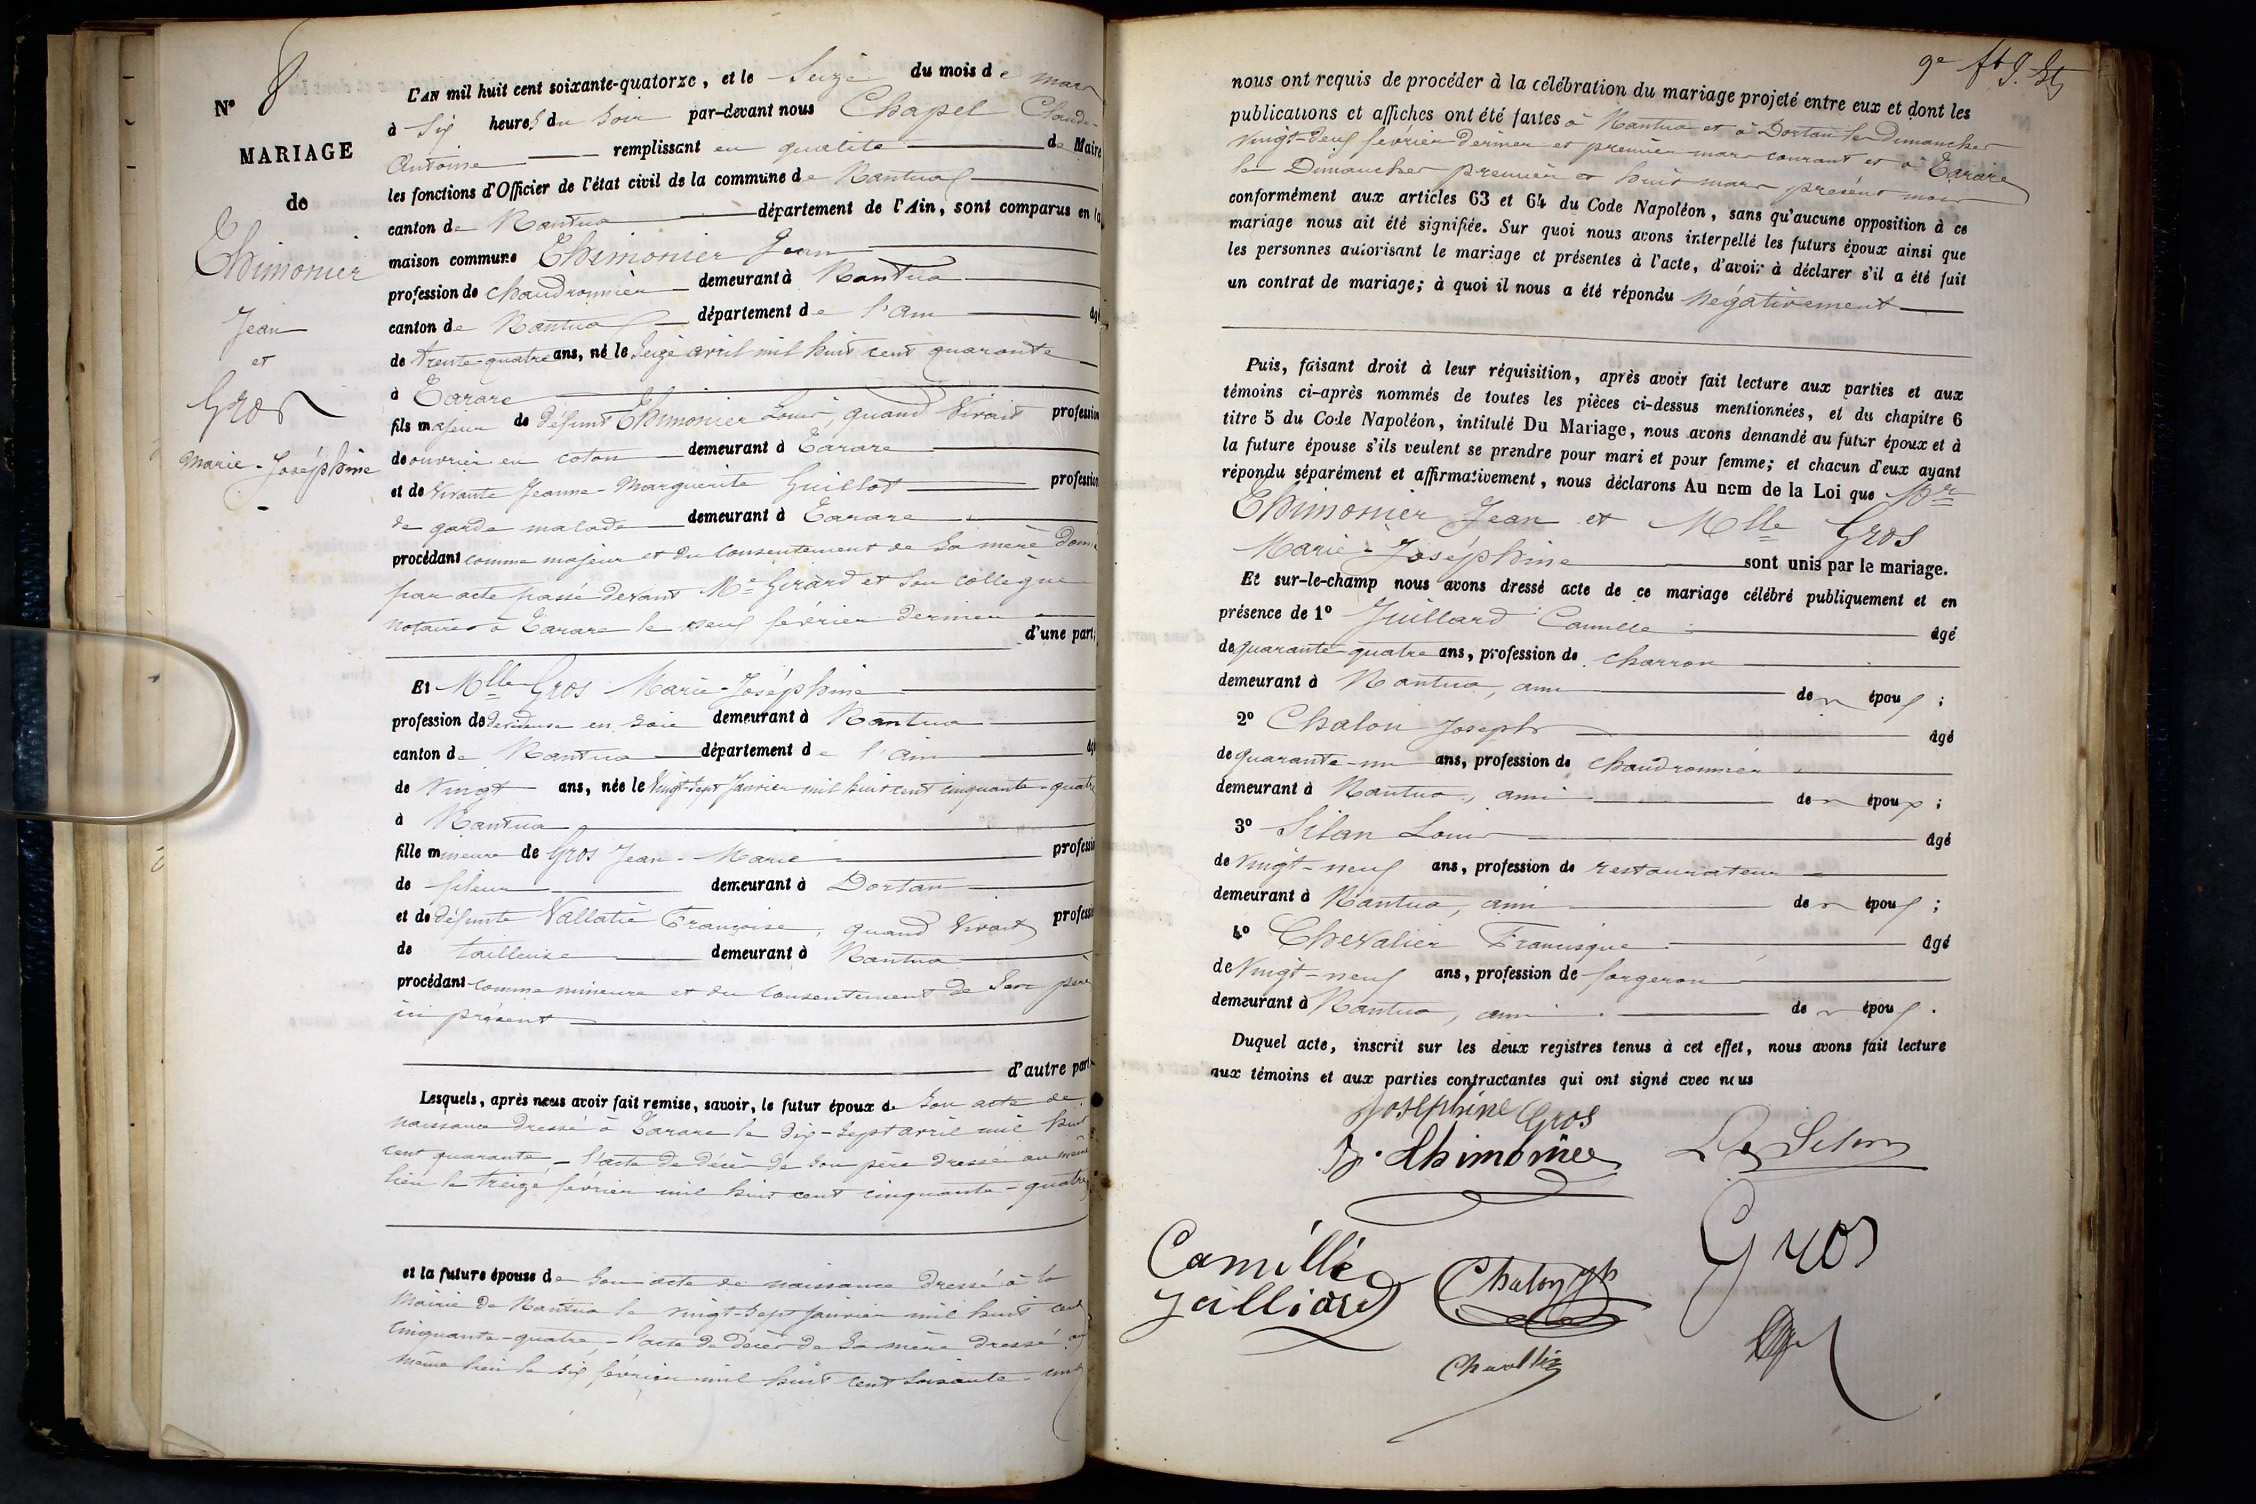 N° 8
MARIAGE
de
Thimonier
Jean
et
Gros
Marie-Joséphine
L'AN mil huit cent soixante-quatorze, et le Seize du mois de mars
à Six heures du soir par-devant nous Chapel Claude-
Antoine remplissant en qualité de Maire
les fonctions d'Officier de l'état civil de la commune de Nantua
canton de Nantua département de l'Ain, sont comparus en la
maison commune Thimonier Jean
profession de chaudronnier demeurant à Nantua
canton de Nantua département de l'Ain âgé
de trente-quatre ans, né le Seize avril mil huit cent quarante
à Tarare
fils majeur de défunt Thimonier Louis, quand vivait profession
de ouvrier en coton demeurant à Tarare
et de vivante Jeanne-Marguerite Guillot profession
de garde malade demeurant à Tarare
procédant comme majeur et du consentement de sa mère donné
par acte passé devant Me Girard et son collègue
notaires à Tarare le neuf février dernier
d'une part;
Et Mlle Gros Marie-Joséphine
profession de dévideuse en soie demeurant à Nantua
canton de Nantua département de l'Ain âgé
de Vingt ans, née le vingt-sept Janvier mil huit cent cinquante-quatre
à Nantua
fille mineure de Gros Jean-Marie profession
de fileur demeurant à Dortan
et de défunte Vallatie Françoise, quand vivait profession
de tailleuse demeurant à Nantua
procédant comme mineure et du consentement de son père
ici présent
d'autre part
Lesquels, après nous avoir fait remise, savoir, le futur époux de son acte de
naissance dressé à Tarare le dix-sept avril mil huit
cent quarante, - l'acte de décès de son père dressé au même
lieu le treize février mil huit cent cinquante-quatre
et la future épouse de son acte de naissance dressé à la
Mairie de Nantua le vingt-sept Janvier mil huit cent
cinquante-quatre, - l'acte de décès de sa mère dressé au
même lieu le six février mil huit cent soixante-cinq
nous ont requis de procéder à la célébration du mariage projeté entre eux et dont les
publications et affiches ont été faites à Nantua et à Dortan les Dimanches
vingt-deux février dernier et premier mars courant et à Tarare
les Dimanches premier et huit mars présent mois
conformément aux articles 63 et 64 du Code Napoléon, sans qu'aucune opposition à ce
mariage nous ait été signifiée. Sur quoi nous avons interpellé les futurs époux ainsi que
les personnes autorisant le mariage et présentes à l'acte, d'avoir à déclarer s'il a été fait
un contrat de mariage; à quoi il nous a été répondu Négativement
Puis, faisant droit à leur réquisition, après avoir fait lecture aux parties et aux
témoins ci-après nommés de toutes les pièces ci-dessus mentionnées, et du chapitre 6
titre 5 du Code Napoléon, intitulé Du Mariage, nous avons demandé au futur époux et à
la future épouse s'ils veulent se prendre pour mari et pour femme; et chacun d'eux ayant
répondu séparément et affirmativement, nous déclarons Au nom de la Loi que Mr
Thimonier Jean et Mlle Gros
Marie-Joséphine sont unis par le mariage.
Et sur-le-champ nous avons dressé acte de ce mariage célébré publiquement et en
présence de 1° Juillard Camille âgé
de quarante-quatre ans, profession de charron
demeurant à Nantua, ami des époux;
2° Chalon Joseph âgé
de quarante-un ans, profession de chaudronnier
demeurant à Nantua, ami des époux;
3° Silan Louis âgé
de Vingt-neuf ans, profession de restaurateur
demeurant à Nantua, ami des époux;
4° Chevalier Francisque âgé
de Vingt-neuf ans, profession de forgeron
demeurant à Nantua, ami des époux.
Duquel acte, inscrit sur les deux registres tenus à cet effet, nous avons fait lecture
aux témoins et aux parties contractantes qui ont signé avec nous
Joséphine Gros
J. Thimonier
Camille
Juilliard
Chalon Jph
Gros